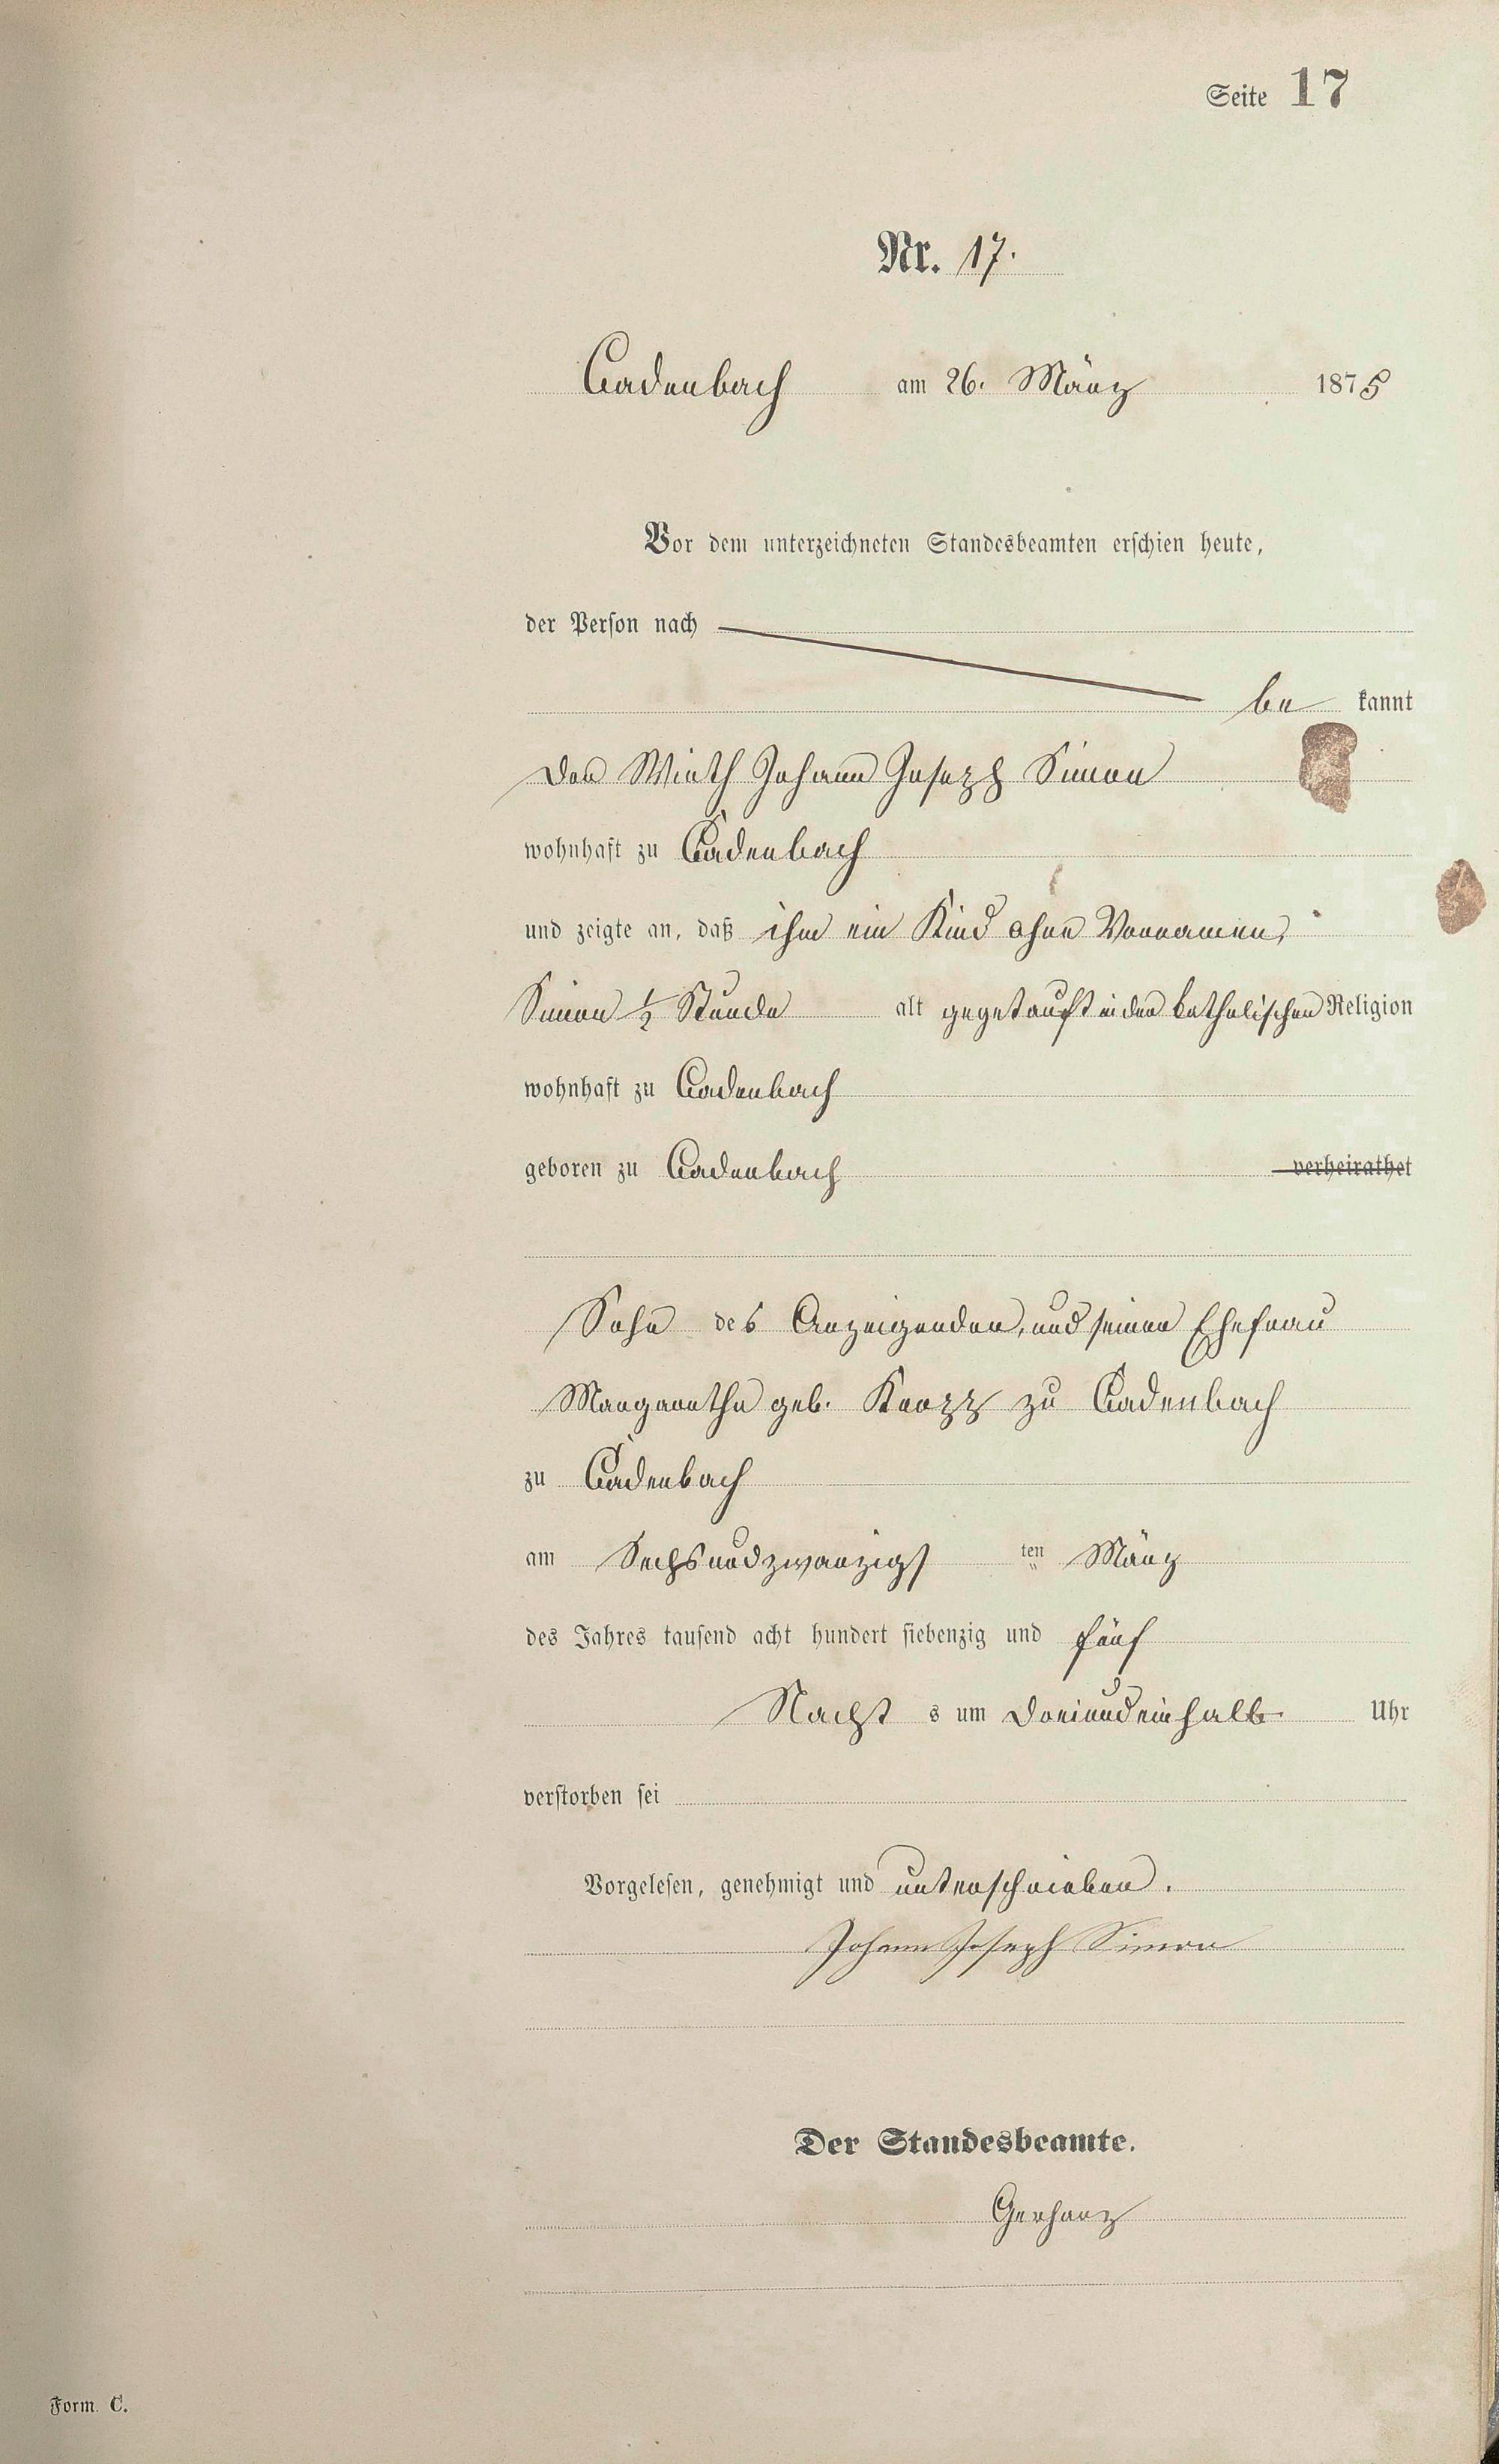 Seite 17
Nr. 17.
Cadenbach am 26. März 1875
Vor dem unterzeichneten Standesbeamten erschien heute,
der Person nach
be kannt
der Wirth Johann Joseph Simon
wohnhaft zu Cadenbach
und zeigte an, daß ihm ein Kind ohne Vornamen,
Simon 1/2 Stunde alt gegetauft in der katholischen Religion
wohnhaft zu Cadenbach
geboren zu Cadenbach verheirathet
Sohn des Anzeigenden, und seiner Ehefrau
Margarethe geb. Knopp zu Cadenbach
zu Cadenbach
am Sechsundzwanzigs ten März
des Jahres tausend acht hundert siebenzig und fünf
Nacht s um dreiundeinhalb Uhr
verstorben sei
Vorgelesen, genehmigt und unterschrieben.
Johann Joseph Simon
Der Standesbeamte.
Gerharz
Form. C.